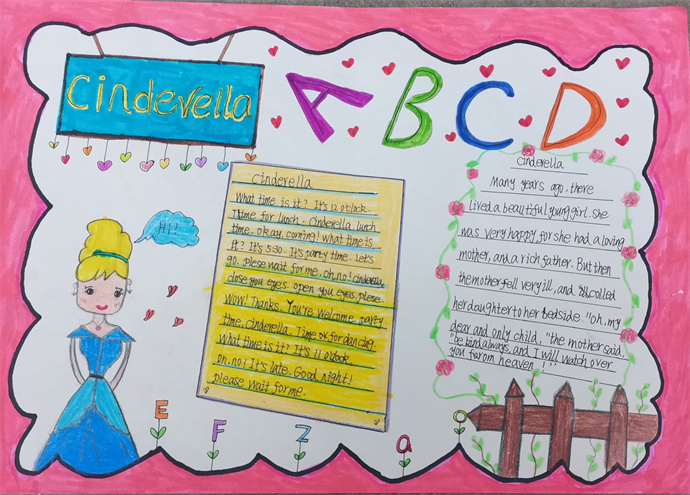 Cinderella
A B C D
Hi!
Cinderella
What time is it? It's 12 o'clock.
Time for lunch. Cinderella, lunch
time. okay, coming! What time is
it? It's 5:30. It's party time. Let's
go. plese wait for me. oh, no! cinderella,
close you eyes. open you eyes, plese.
Wow! Thanks. You're welcome. party
time, cinderella. Time for dancing.
What time is it? It's 11 o'clock
oh, no! It's late. Good night!
please wait for me.
cinderella
Many years ago, there
lived a beautiful young girl. she
was very happy, for she had a loving
mother, and a rich father. But then
the mother fell very ill, and called
her daughter to her bedside. "oh, my
dear and only child, "the mother said.
"be kind always, and I will watch over
you farom heaven!"
E F Z a